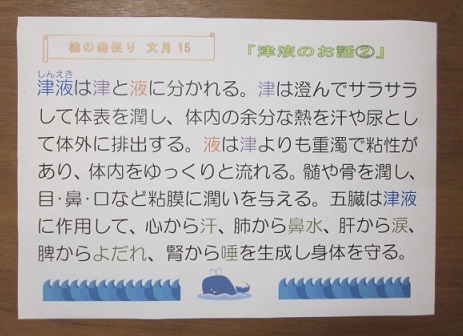 桧の森便り 文月15
『津液のお話②』
しんえき
津液は津と液に分かれる。津は澄んでサラサラ
して体表を潤し、体内の余分な熱を汗や尿とし
て体外に排出する。液は津よりも重濁で粘性が
あり、体内をゆっくりと流れる。髄や骨を潤し、
目・鼻・口など粘膜に潤いを与える。五臓は津液
に作用して、心から汗、肺から鼻水、肝から涙、
脾からよだれ、腎から唾を生成し身体を守る。